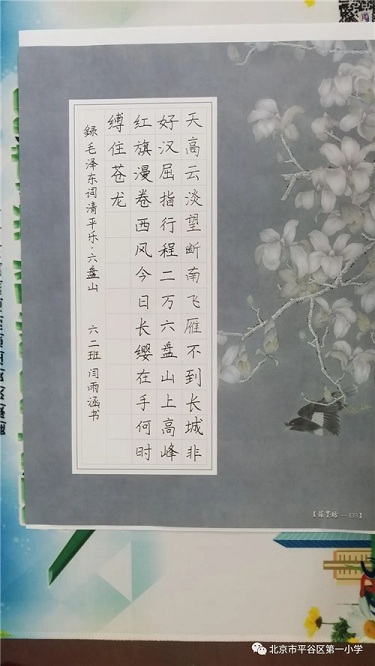 天高云淡望断南飞雁不到长城非
好汉屈指行程二万六盘山上高峰
红旗漫卷西风今日长缨在手何时
缚住苍龙
録毛泽东词清平乐·六盘山 六二班闫雨涵书
北京市平谷区第一小学